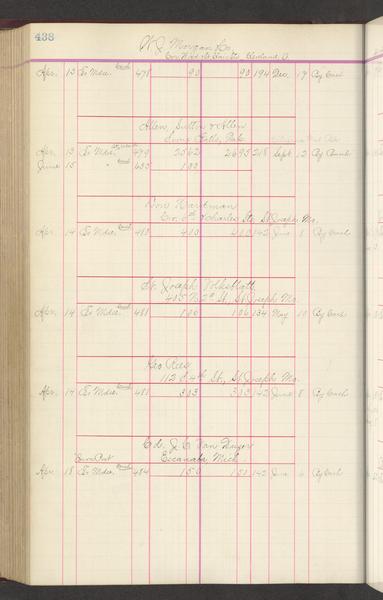 438
W. J. Morgan & Co.
Cleveland, O.
Apr. 13 To Mdse. 478 90 90 194 Dec. 19 By Cash
Allen, Sutton & Allen
Sioux Falls, Dak.
Apr. 13 To Mdse. 479 2562 2695 218 Sept 12 By
June 15 " 635 133
Don Hardman
Cor. 6th & Charles Sts., St. Joseph, Mo.
Apr. 14 To Mdse. 480 400 400 142 June 8 By Cash
St. Joseph Volksblatt
405 N. 2d St., St. Joseph, Mo.
Apr. 14 To Mdse. 481 106 106 134 May 10 By Cash
Geo. Rees
112 S. 4th St., St. Joseph, Mo.
Apr. 14 To Mdse. 481 303 303 142 June 8 By Cash
Ed. J. C. Van Duzer
Escanaba, Mich.
Iron Port
Apr. 18 To Mdse. 484 150 150 142 June 6 By Cash